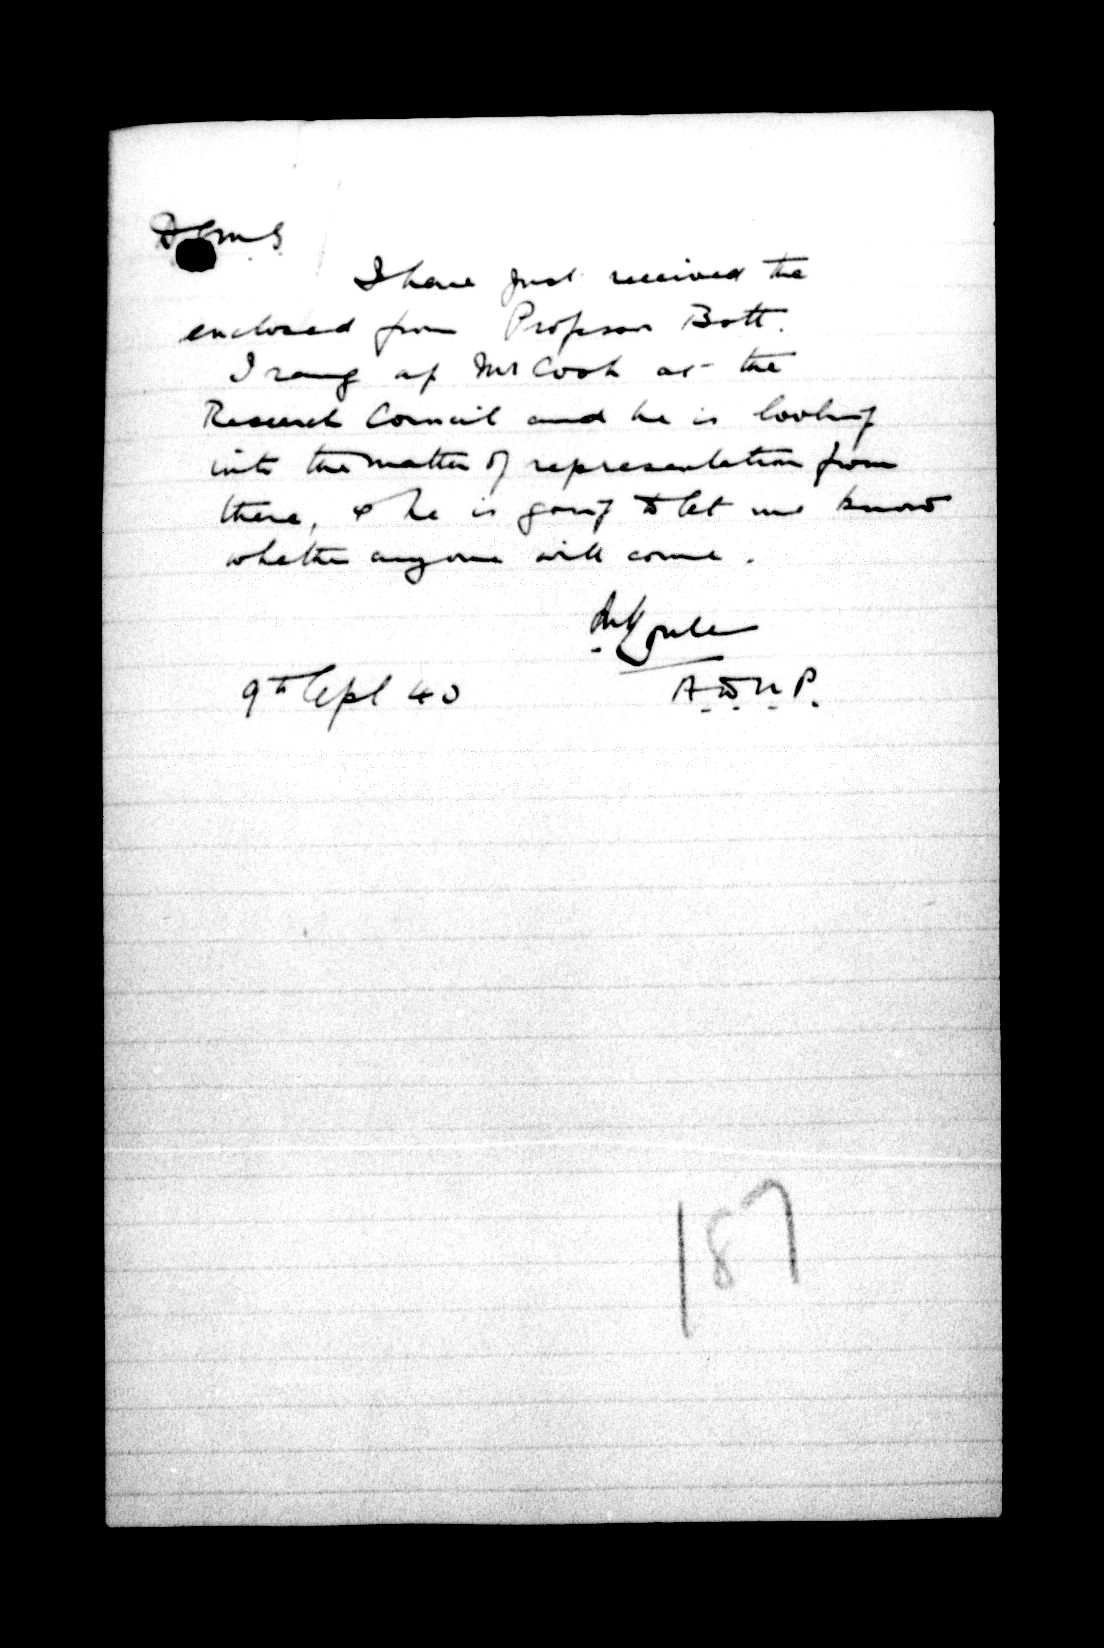 D.G.M.S.
I have just received the
enclosed from Professor Bott.
I rang up Mr Cook at the
Research Council and he is looking
into the matter of representation from
there, & he is going to let me know
whether anyone will come.
9th Sept 40
A.D.N.P.
187